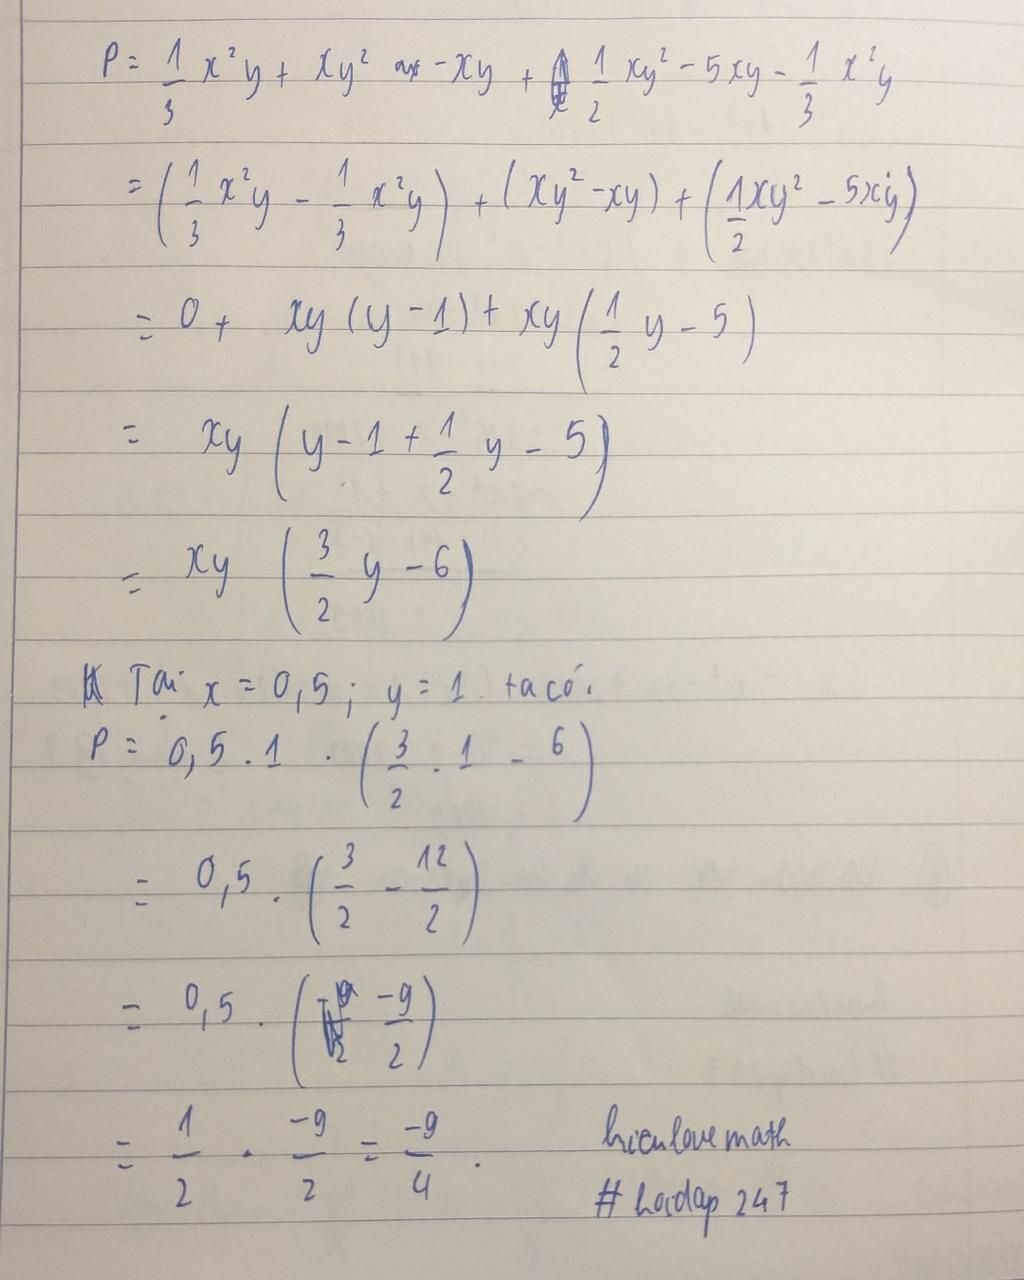 P = 1/3 x²y + xy² - xy + 1/2 xy² - 5xy - 1/3 x²y
= (1/3 x²y - 1/3 x²y) + (xy² - xy) + (1/2 xy² - 5xy)
= 0 + xy (y - 1) + xy (1/2 y - 5)
= xy (y - 1 + 1/2 y - 5)
= xy (3/2 y - 6)
Tại x = 0,5 ; y = 1 ta có:
P = 0,5 . 1 . (3/2 . 1 - 6)
= 0,5 . (3/2 - 12/2)
= 0,5 . (-9/2)
= 1/2 . -9/2 = -9/4 .
hienlovemath
# hoidap 247